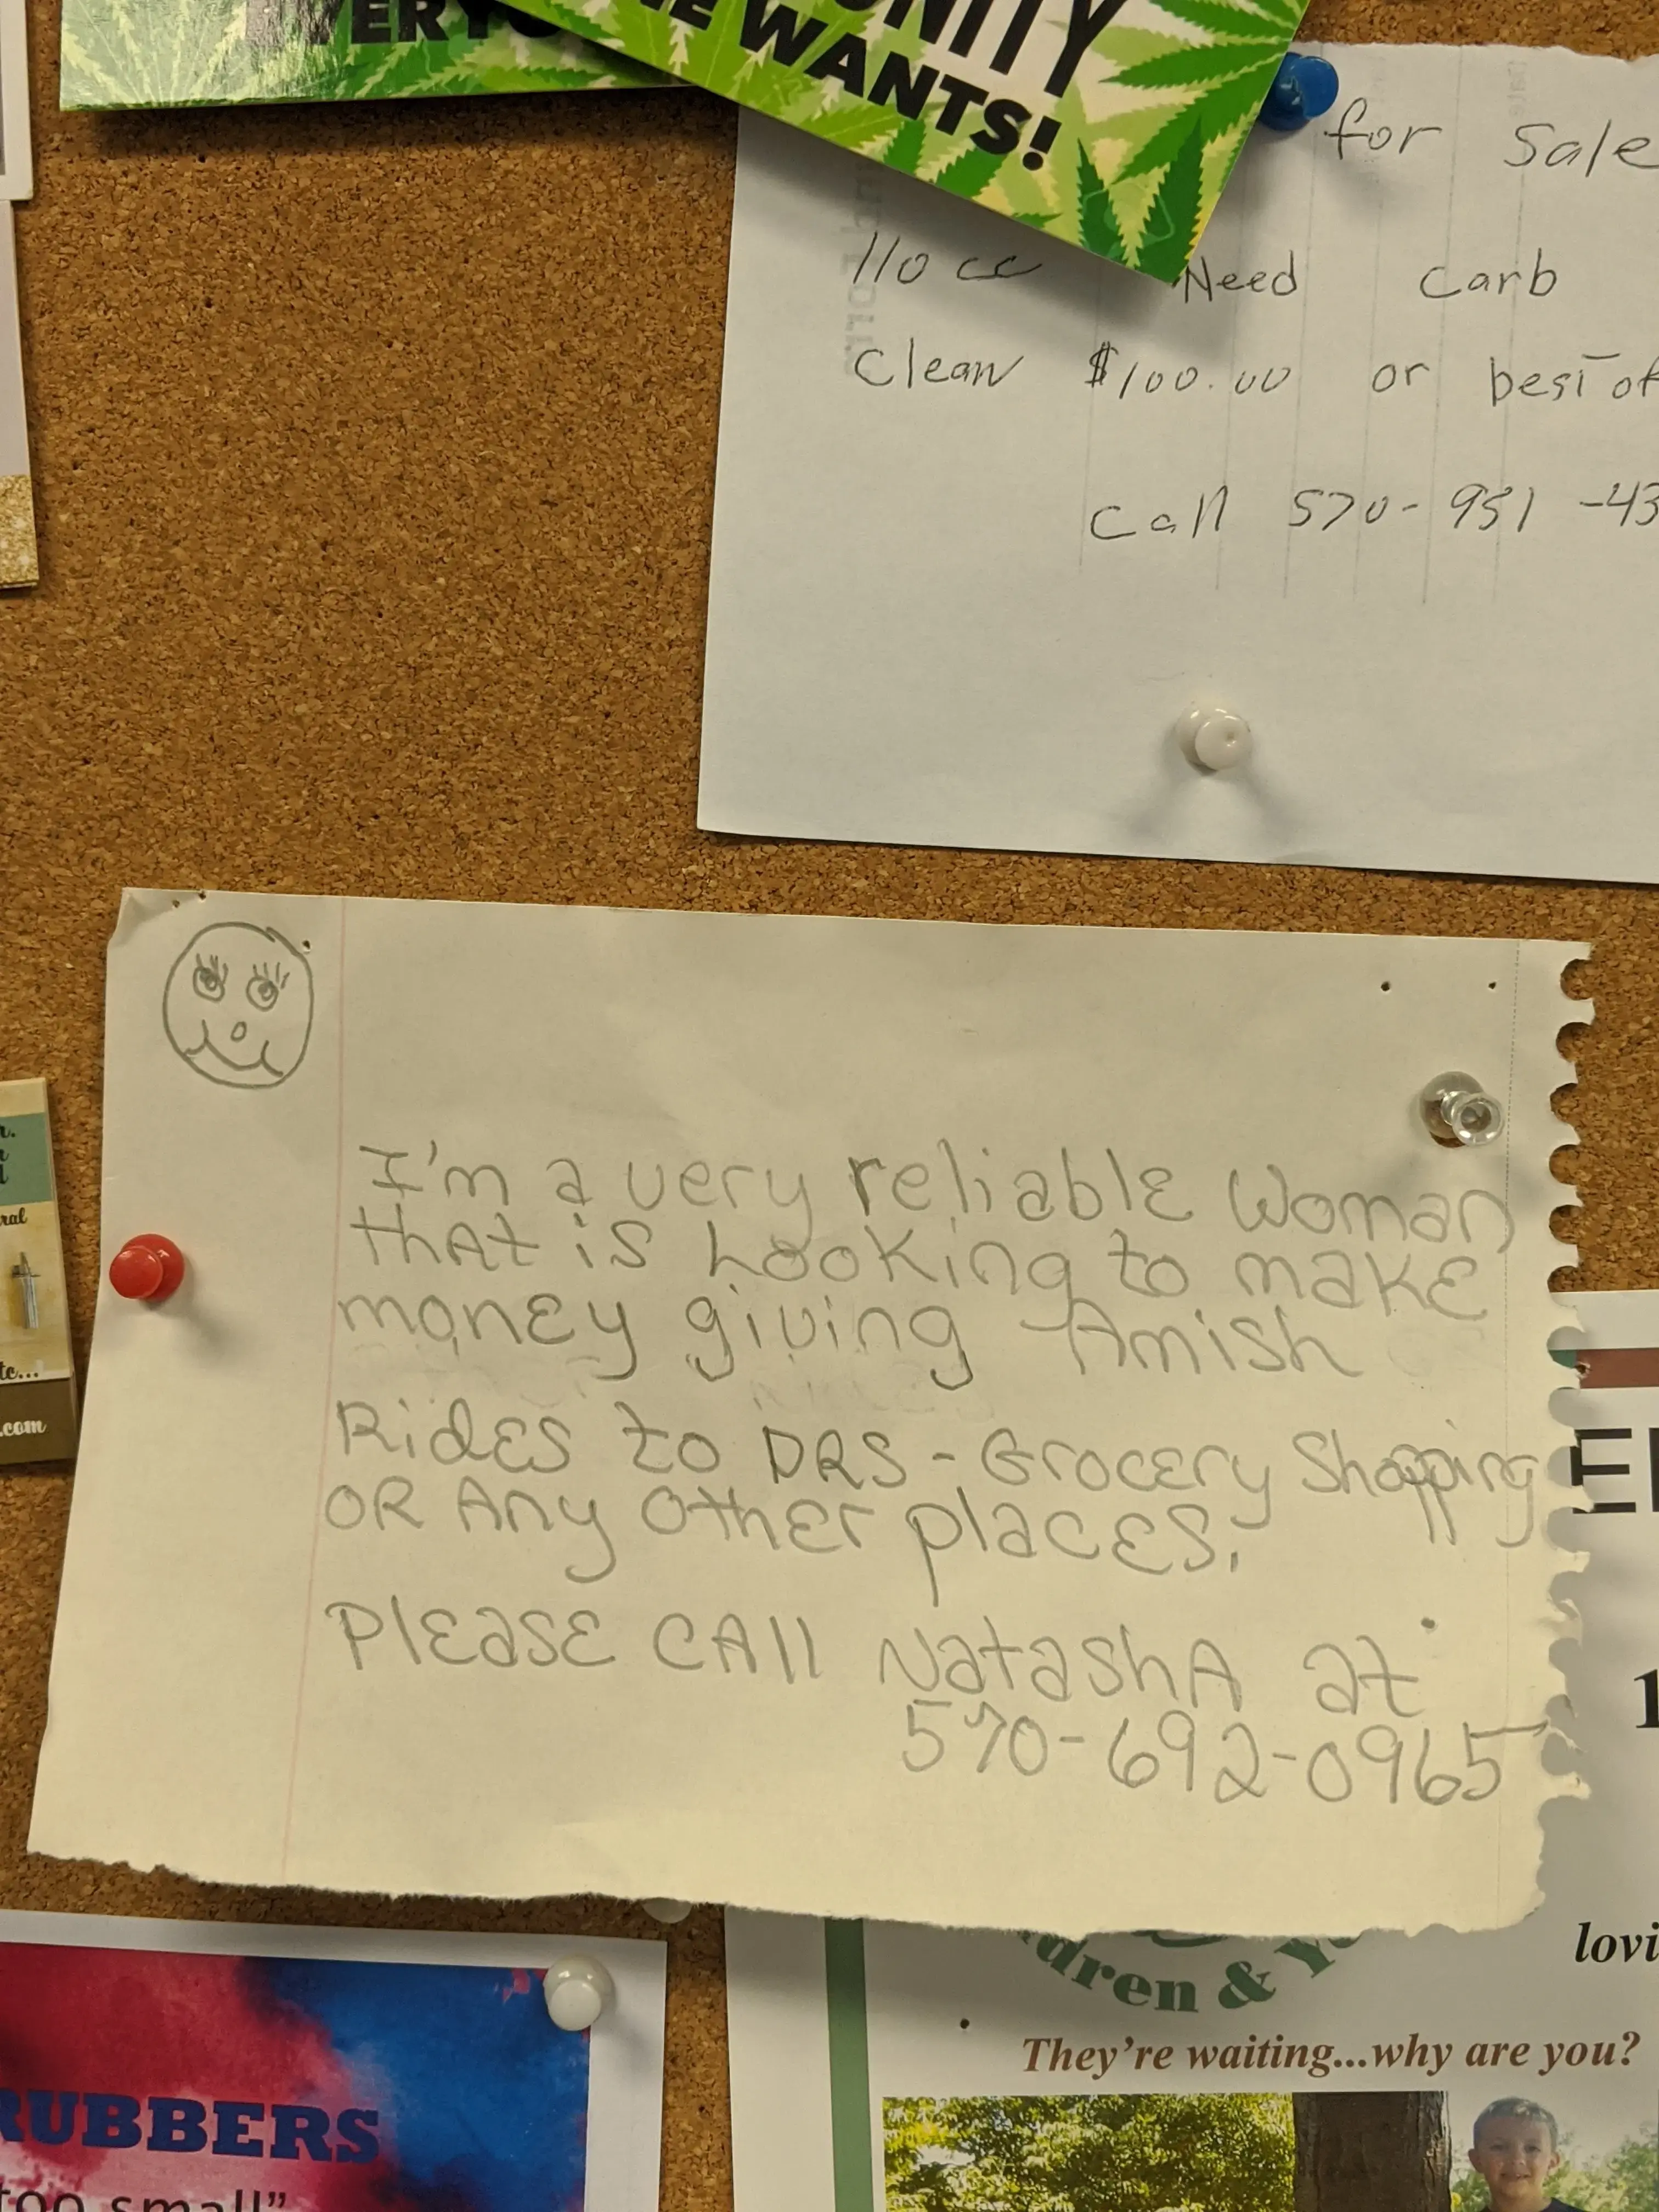 UNITY
WANTS!
for Sale
110 cc Need Carb
Clean $100.00 or best of
Call 570-951-43
I'm a very reliable Woman
that is Looking to make
money giving Amish
Rides to DRS - Grocery Shopping
OR Any Other places.
Please CAll NatashA at
570-692-0965
ral
tc...
.com
1
lovi
dren & Y
They're waiting...why are you?
RUBBERS
too small"